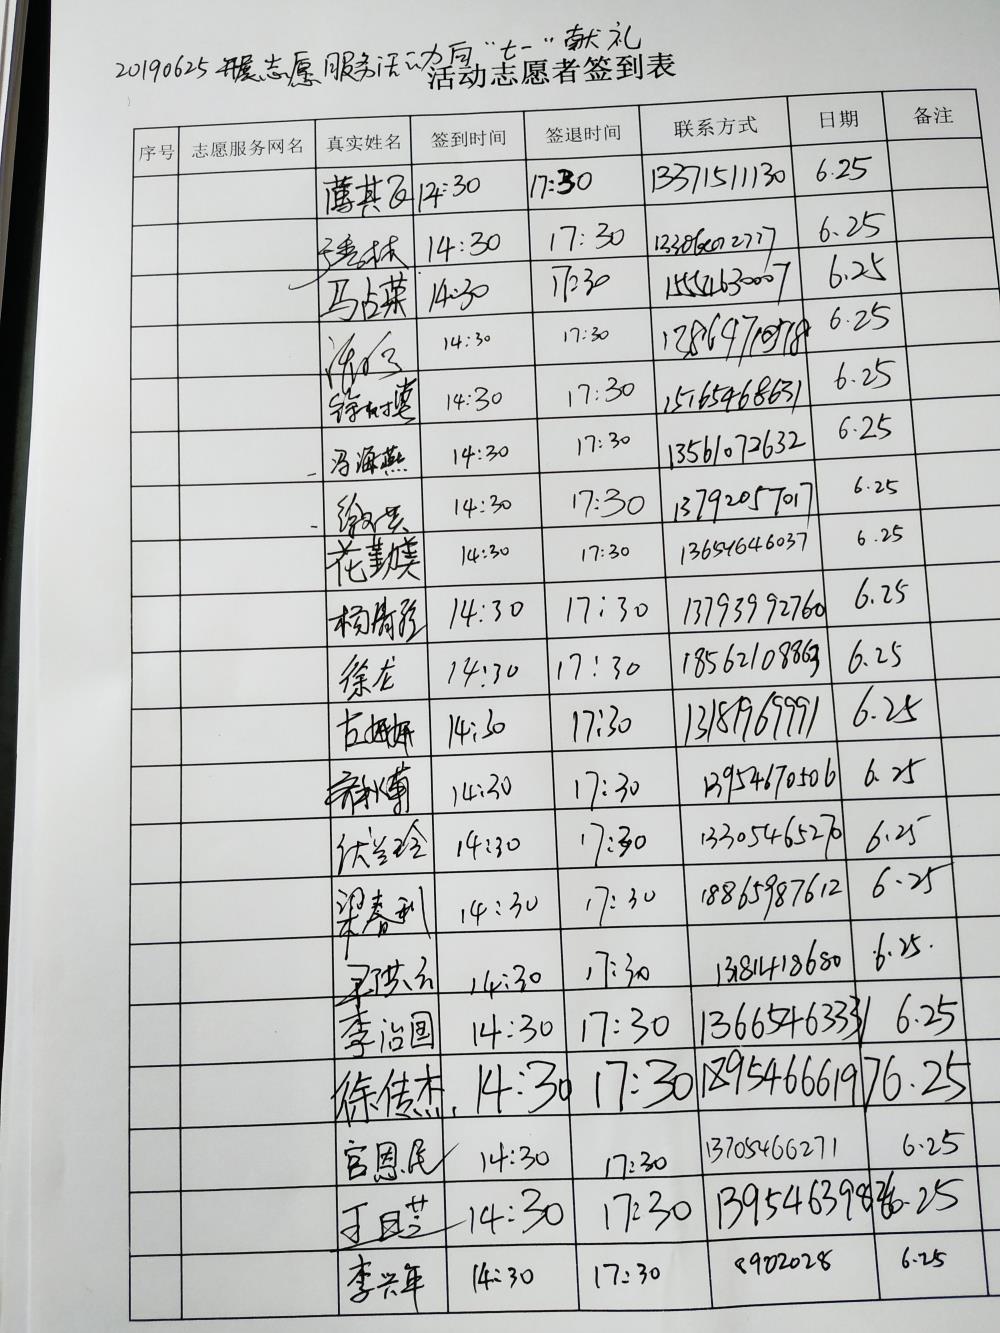 20190625开展志愿服务活动向"七一"献礼
活动志愿者签到表
序号 志愿服务网名 真实姓名 签到时间 签退时间 联系方式 日期 备注
14:30 17:30 13371511130 6.25
14:30 17:30 6.25
马占荣 14:30 17:30 6.25
14:30 17:30 6.25
14:30 17:30 15165468631 6.25
冯海燕 14:30 17:30 13561072632 6.25
14:30 17:30 13792057017 6.25
花勤美 14:30 17:30 13654646037 6.25
14:30 17:30 13793992760 6.25
徐龙 14:30 17:30 18562108863 6.25
14:30 17:30 13181969991 6.25
14:30 17:30 13954670506 6.25
伏兰玲 14:30 17:30 13305465270 6.25
梁春利 14:30 17:30 18865987612 6.25
14:30 17:30 13181418680 6.25
李治国 14:30 17:30 13665463331 6.25
徐传杰 14:30 17:30 18954666197 6.25
宫恩民 14:30 17:30 13705466271 6.25
14:30 17:30 6.25
李兴年 14:30 17:30 8902028 6.25